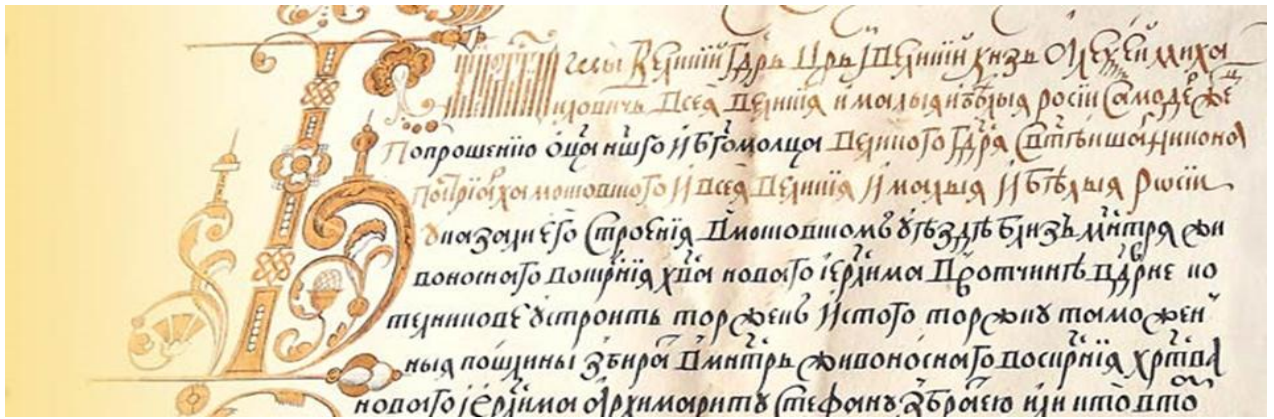 Великий Гдрь Црь и Великий Кнзь Алеѯей Миха
иловичь всеа великия и малыя и белыя росіи самодержец
По прошению оца ншго и бгомолца великого Гдря Свтейшаг Никона
патриарха московского и всеа великия и малыя и белыя росіи
указали его строения в московском уѣзде близь мнтря жи
воносного воскрніа хва нового іерлима в вотчинѣ в дрвне ко
телникове устроить торжек и с того торжку таможен
ныя пошлины збират в мнтрь живоносного воскрніа хртва
нового іерлима архимариту Стефану з братею или кто в то